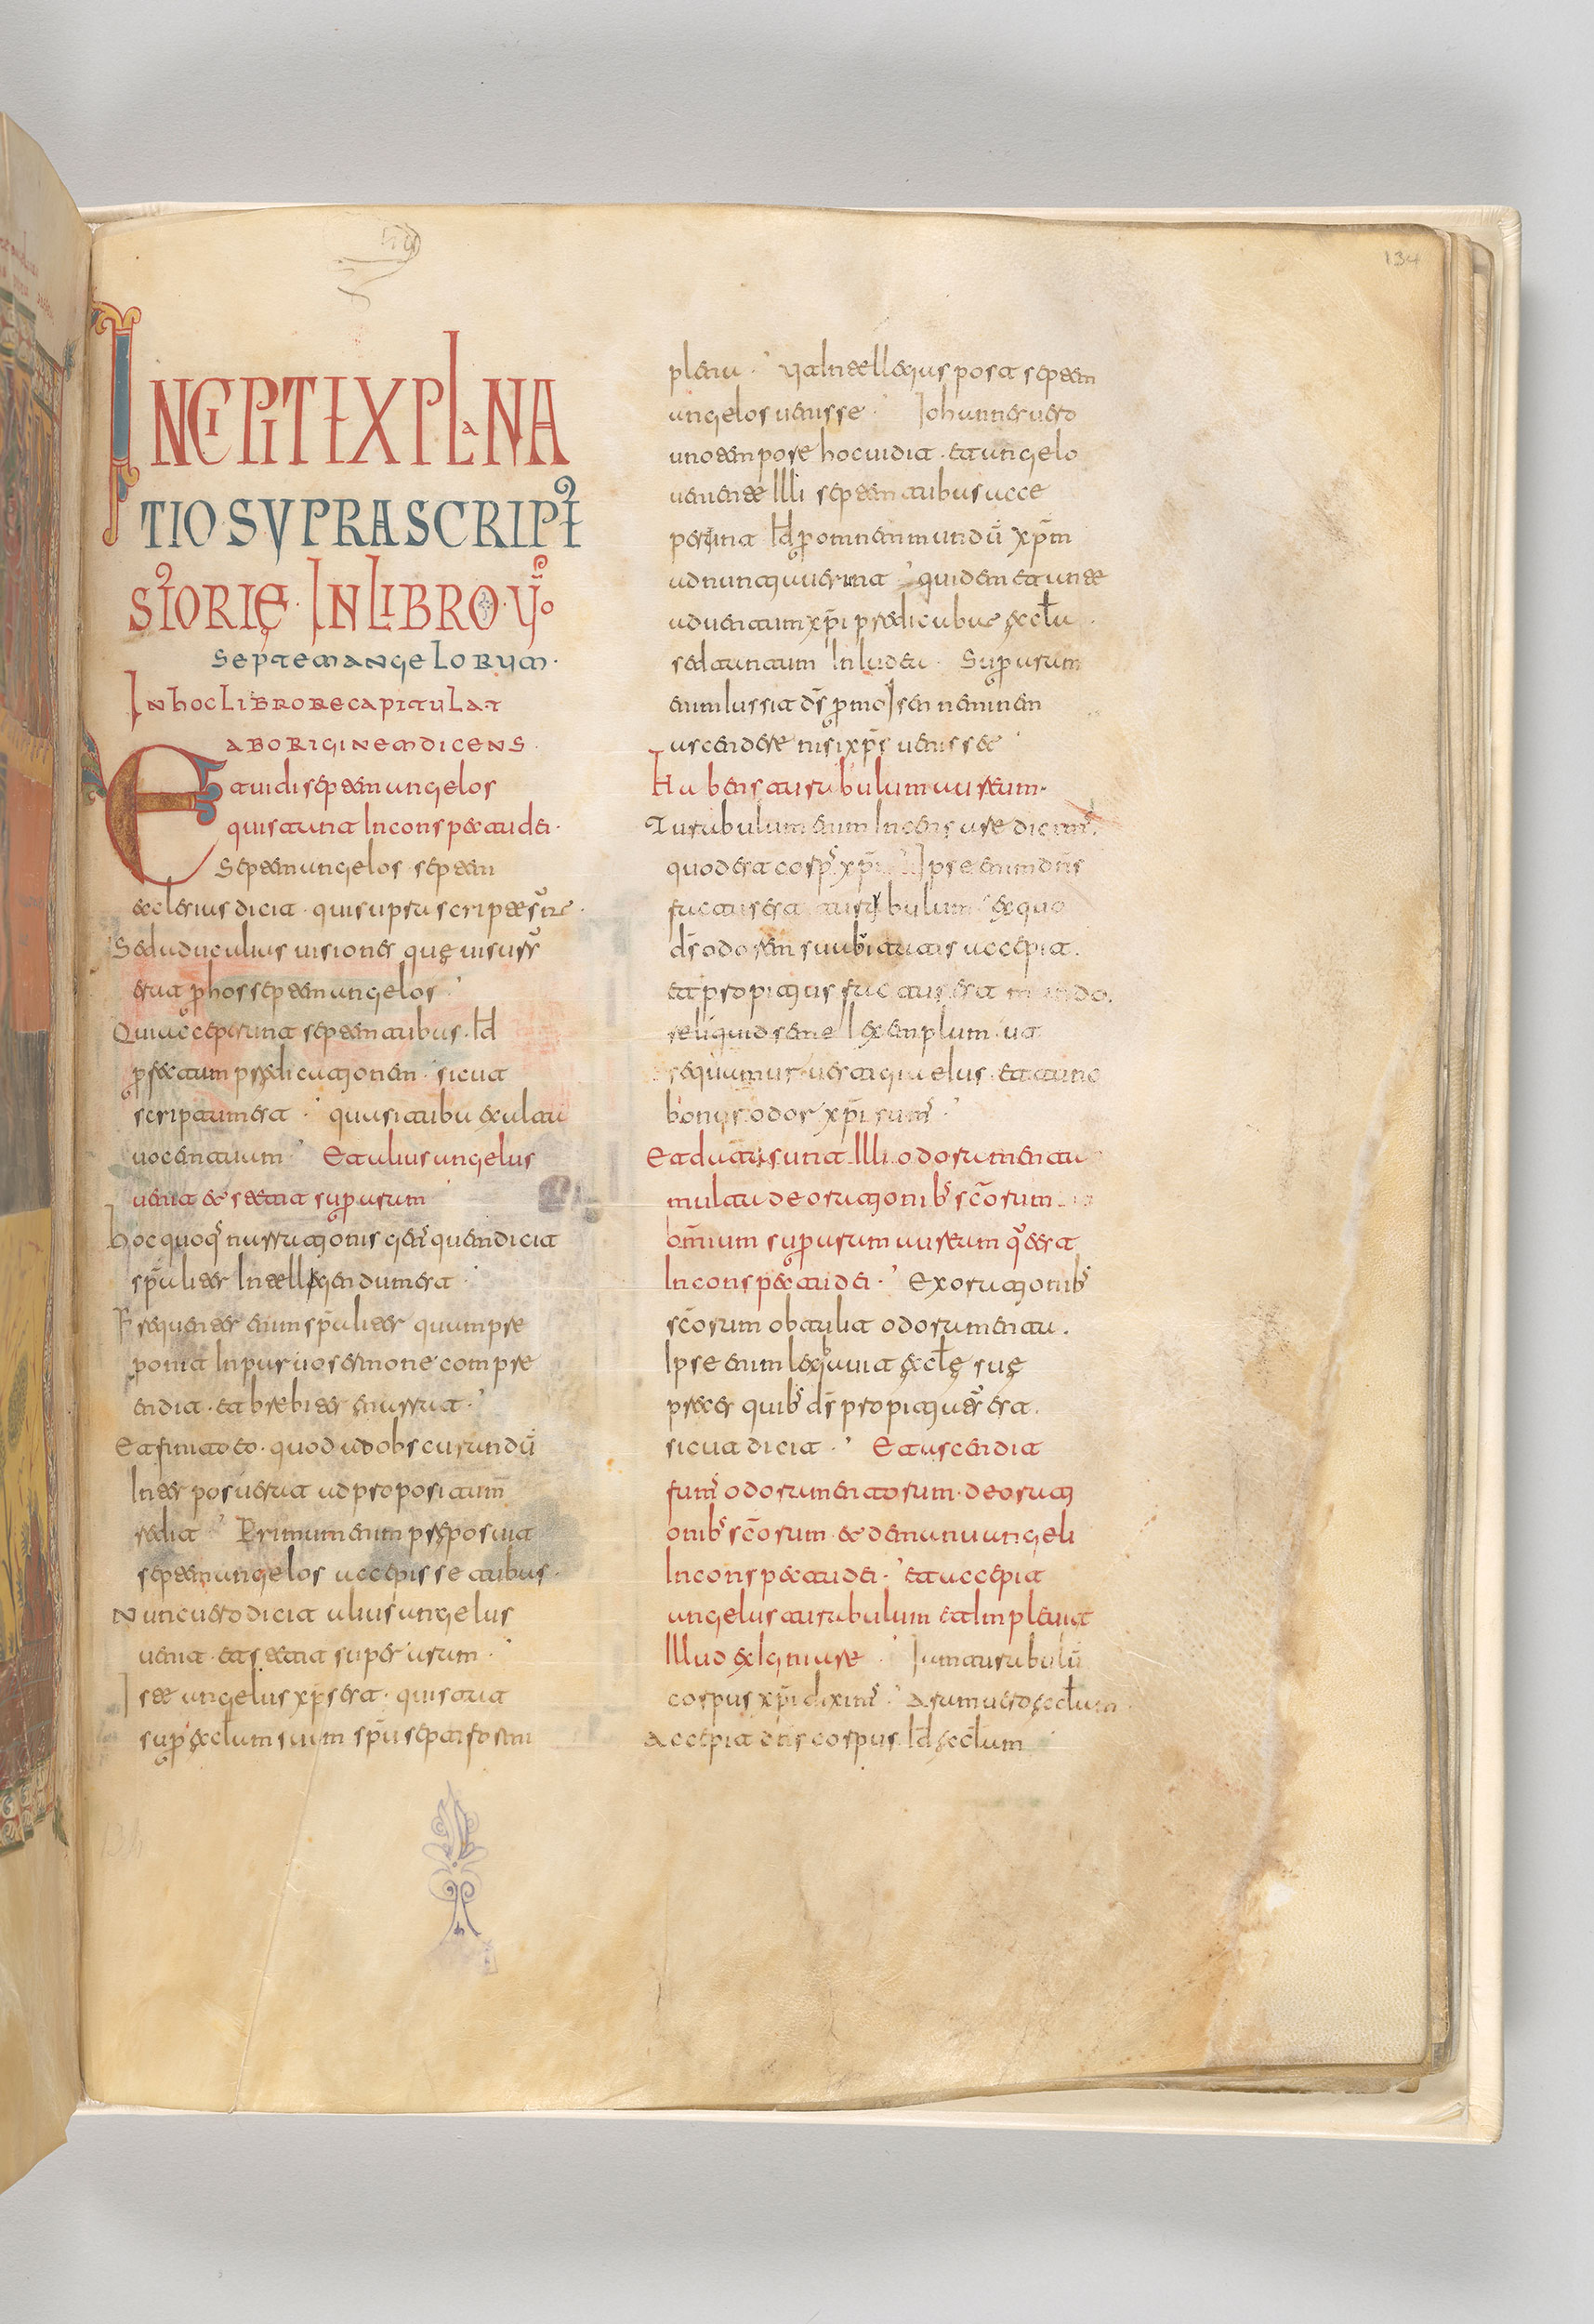 134
INCIPIT EXPLANA
TIO SUPRASCRIPTE
STORIĘ IN LIBRO V̅o
SEPTEM ANGELORUM.
IN HOC LIBRO RECAPITULAT
AB ORIGINEM DICENS.
Et uidi septem angelos
qui stant In conspectu dei.
Septem angelos septem
Sed ad alius uisiones quę uisurus
erat p hos septem angelos.
Qui acceperunt septem tubas. Id
pfectum predicationem. sicut
scriptum est. quasi tuba exulta
uocem tuam. Et alius angelus
uenit et stetit sup aram
hoc quoq narrationis gen quem dicit
sp̅aliter Intellegendum est.
Frequenter enim sp̅aliter quum pre
ponit In paruo sermone compre
endit. et brebiter enarrat.
Et finito eo. quod ad obscurandu̅
Inter posuerat ad propositum
redit. Primum enim preposuit
septem angelos accepisse tubas.
Nunc uero dicit alius angelus
uenit. et stetit super aram.
Iste angelus xp̅s est. qui stat
sup ęcl̅am suam sp̅u septiformi
plena. Ut Intellegas post septem
angelos uenisse. Iohannes uero
uno tempore hoc uidit. et angelo
uenente Illi septem tubas acce
perunt Id p omnem mundu̅ xp̅m
adnuntiauerunt. quidem et ante
aduentum xp̅i predicabat ęcl̅a.
sed tantum In Iudea. Sup aram
enim Iussit ds̅ p moysen neminem
ascendere nisi xp̅s uenisset
Habens turabulum aureum.
Turabulum enim Incensare dicim̅.
quod est corp̅ xp̅i. Ipse enim dn̅s
factus est turabulum ex quo
ds̅ odorem suabitatis accepit.
et propitius factus est mundo.
reliquid sene exemplum ut
sequamur uestigia eius. et tunc
bonus odor xp̅i sum̅.
Et data sunt Illi odoramenta
multa de orationib̅ sc̅orum
om̅ium sup aram auream q̅ est
In conspectu dei. Ex orationib̅
sc̅orum obtulit odoramenta.
Ipse enim legabit ęcl̅ę suę
preces quib̅ ds̅ propitiatus est.
sicut dicit. Et ascendit
fum̅ odoramentorum. de orati
onib̅ sc̅orum et de manu angeli
In conspectu dei. et accepit
angelus turabulum et Impleuit
Illud ex Igni are. Iam turabulu̅
corpus xp̅i diximus. Aram uero ęcl̅am
Accepit dn̅s corpus. Id ęcl̅am